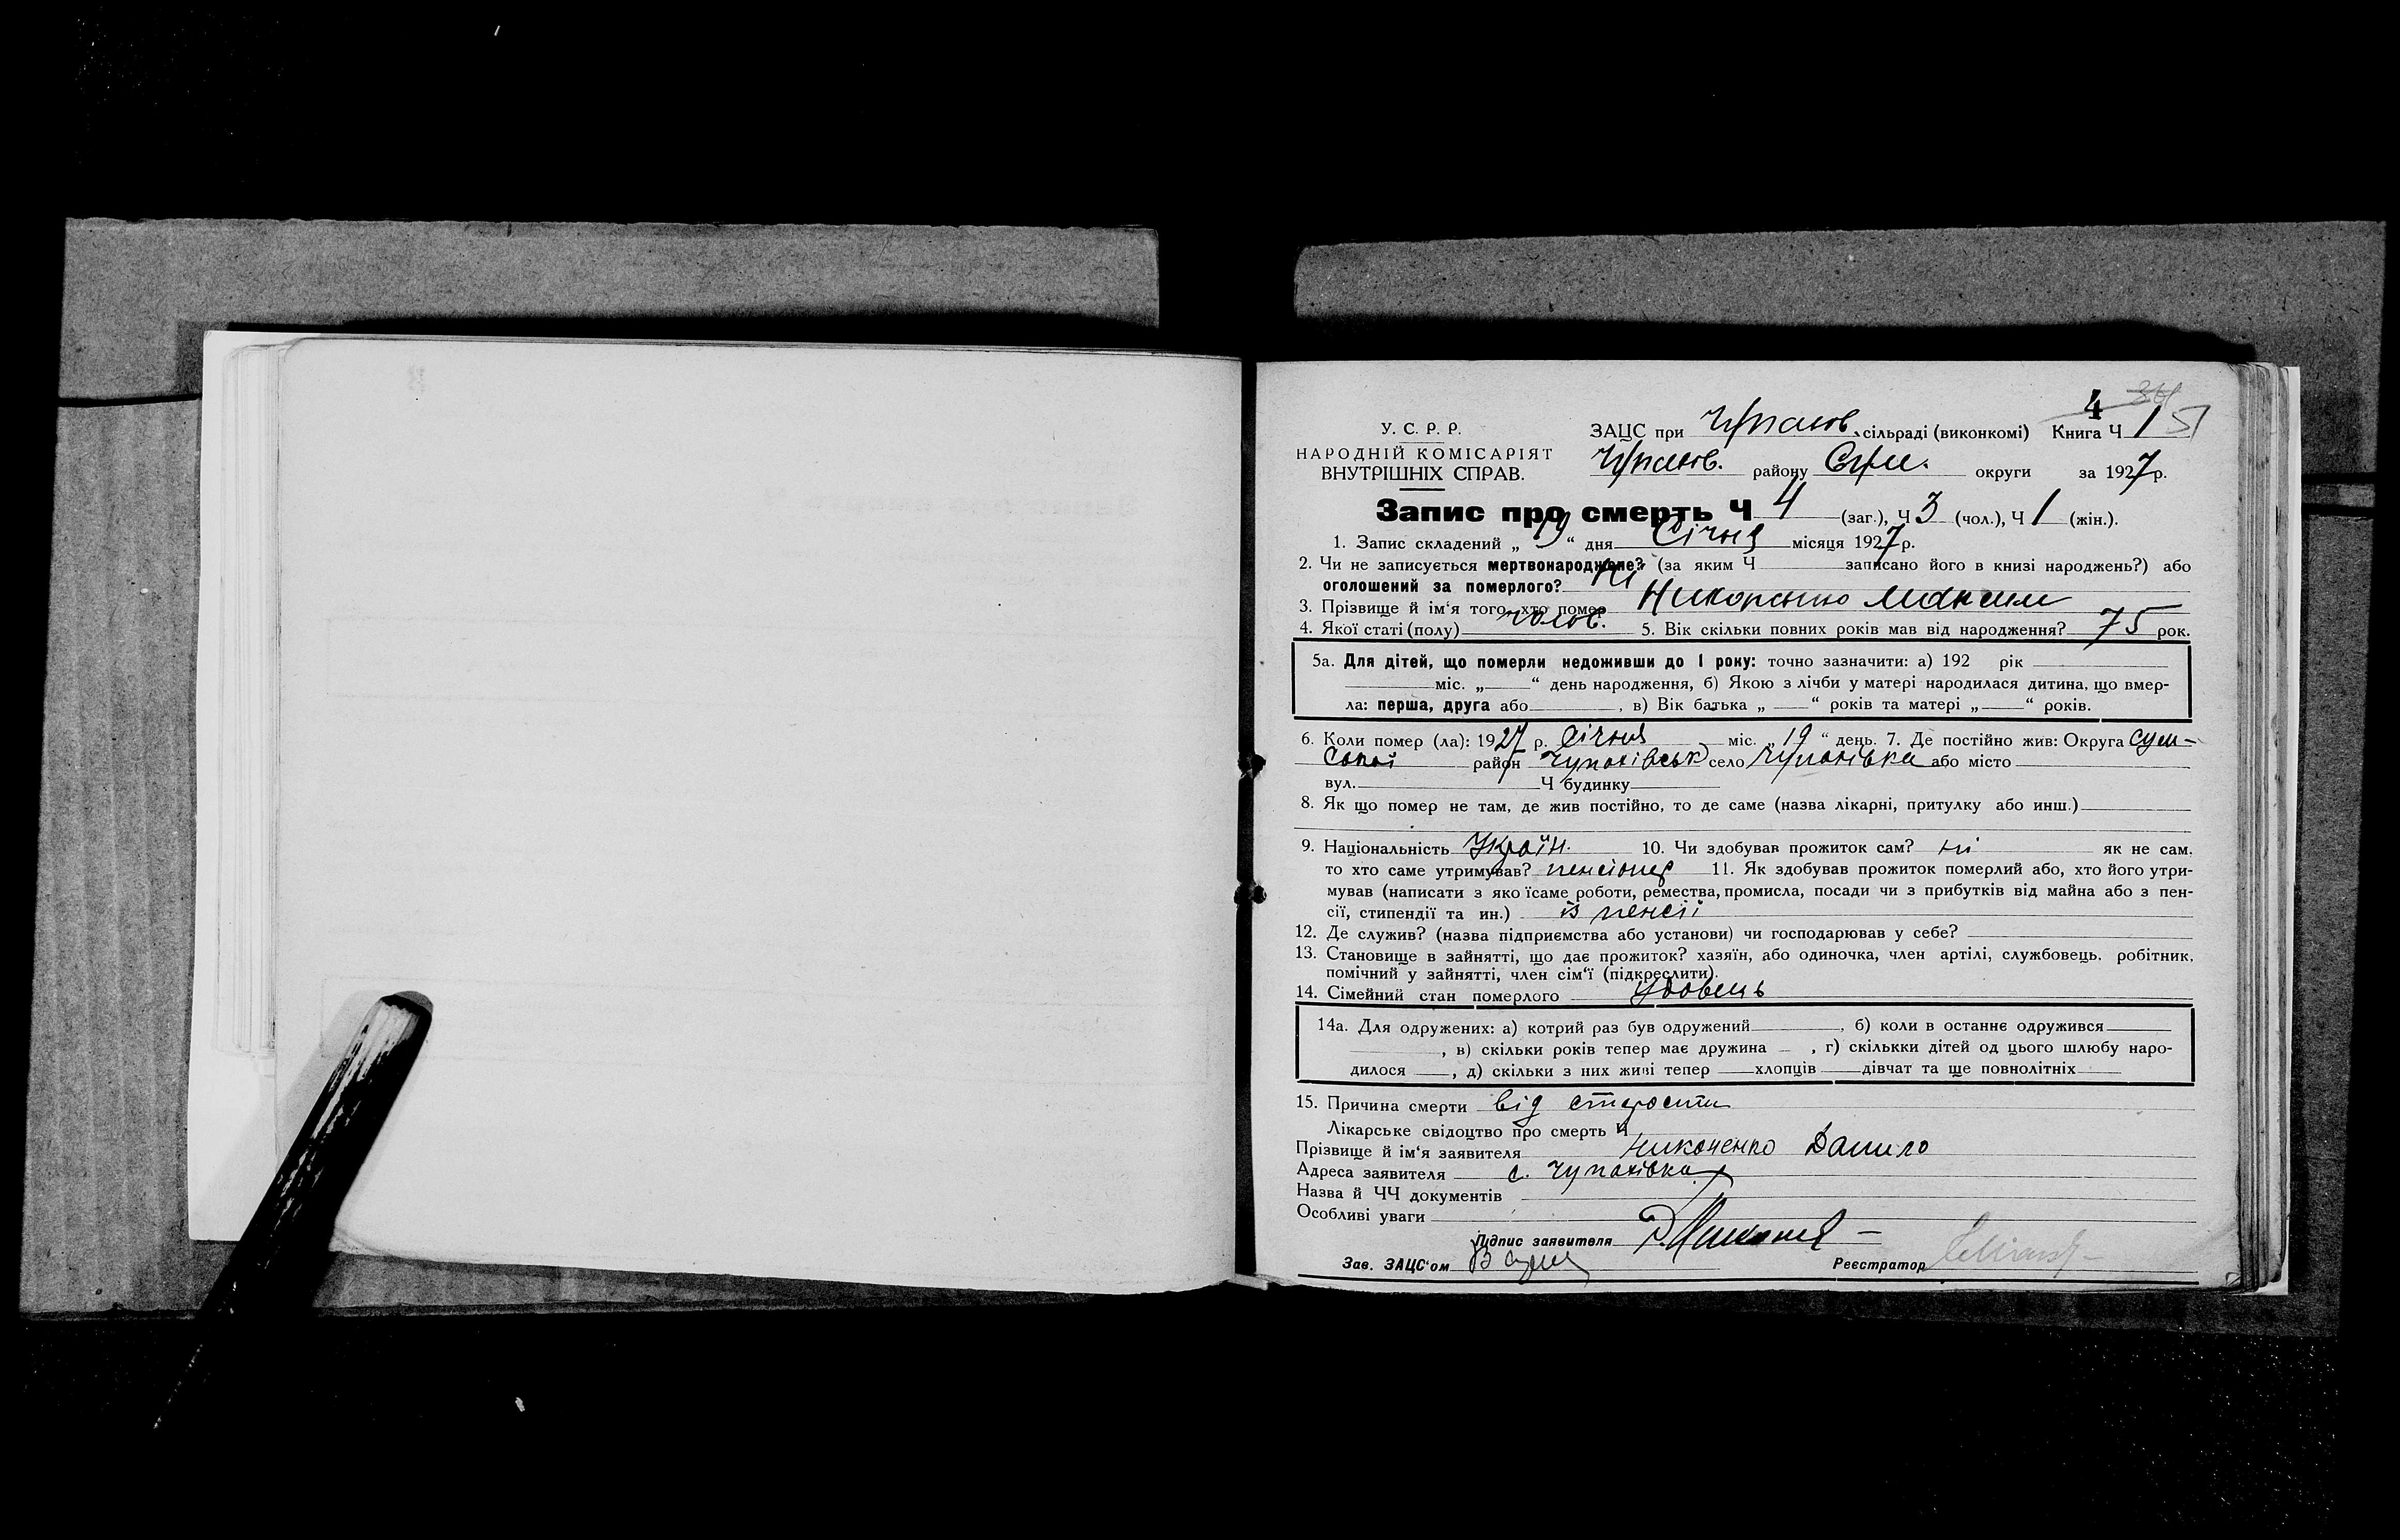 4
У. С. Р. Р. ЗАЦС при Чупахов. сільраді (виконкомі) Книга Ч 1
НАРОДНІЙ КОМІСАРІЯТ
ВНУТРІШНІХ СПРАВ. Чупахов. району Сум. округи за 1927 р.
Запис про смерть Ч 4 (заг.), Ч 3 (чол.), Ч 1 (жін.).
1. Запис складений „ 19 “ дня Січня місяця 1927 р.
2. Чи не записується мертвонароджене? (за яким Ч записано його в книзі народжень?) або
оголошений за померлого? Ні
3. Прізвище й ім‘я того, хто помер Максим
4. Якої статі (полу) чолов. 5. Вік скільки повних років мав від народження? 75 рок.
5а. Для дітей, що померли недоживши до 1 року: точно зазначити: а) 192 рік
міс. „ “ день народження, б) Якою з лічби у матері народилася дитина, що вмер-
ла: перша, друга або , в) Вік батька „ “ років та матері „ “ років.
6. Коли помер (ла): 1927 р. Січня міс. „ 19 “ день. 7. Де постійно жив: Округа Сум-
ської район Чупахівськ село Чупахівка або місто
вул. Ч будинку
8. Як що помер не там, де жив постійно, то де саме (назва лікарні, притулку або инш.)
9. Національність Україн. 10. Чи здобував прожиток сам? ні як не сам.
то хто саме утримував? пенсіонер 11. Як здобував прожиток померлий або, хто його утри-
мував (написати з яко їсаме роботи, ремества, промисла, посади чи з прибутків від майна або з пен-
сії, стипендії та ин.) із пенсії
12. Де служив? (назва підприємства або установи) чи господарював у себе?
13. Становище в зайнятті, що дає прожиток? хазяїн, або одиночка, член артілі, службовець. робітник,
помічний у зайнятті, член сім‘ї (підкреслити).
14. Сімейний стан померлого Удовець
14а. Для одружених: а) котрий раз був одружений , б) коли в останнє одружився
, в) скільки років тепер має дружина , г) скількки дітей од цього шлюбу наро-
дилося , д) скільки з них живі тепер хлопців дівчат та ще повнолітніх
15. Причина смерти від старости
Лікарське свідоцтво про смерть Ч
Прізвище й ім‘я заявителя Никоненко Данило
Адреса заявителя с. Чупахівка
Назва й ЧЧ документів
Особливі уваги
Підпис заявителя
Зав. ЗАЦС‘ом Реєстратор